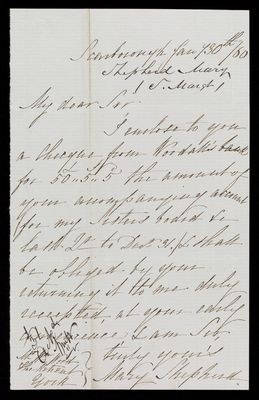 Scarborough Jan 30th/60
Shepherd Mary
(S. Margt)
My dear Sir
I enclose to you
a Cheque from Woodalls bank
for 50..5..5 the amount of
your accompanying account
for my Sisters board &c
last Qr to Decr 31. I shall
be obliged by your
returning it to me duly
receipted, at your early
convenience. I am Sir,
truly yours
The Retreat
York
Mary Shepherd.